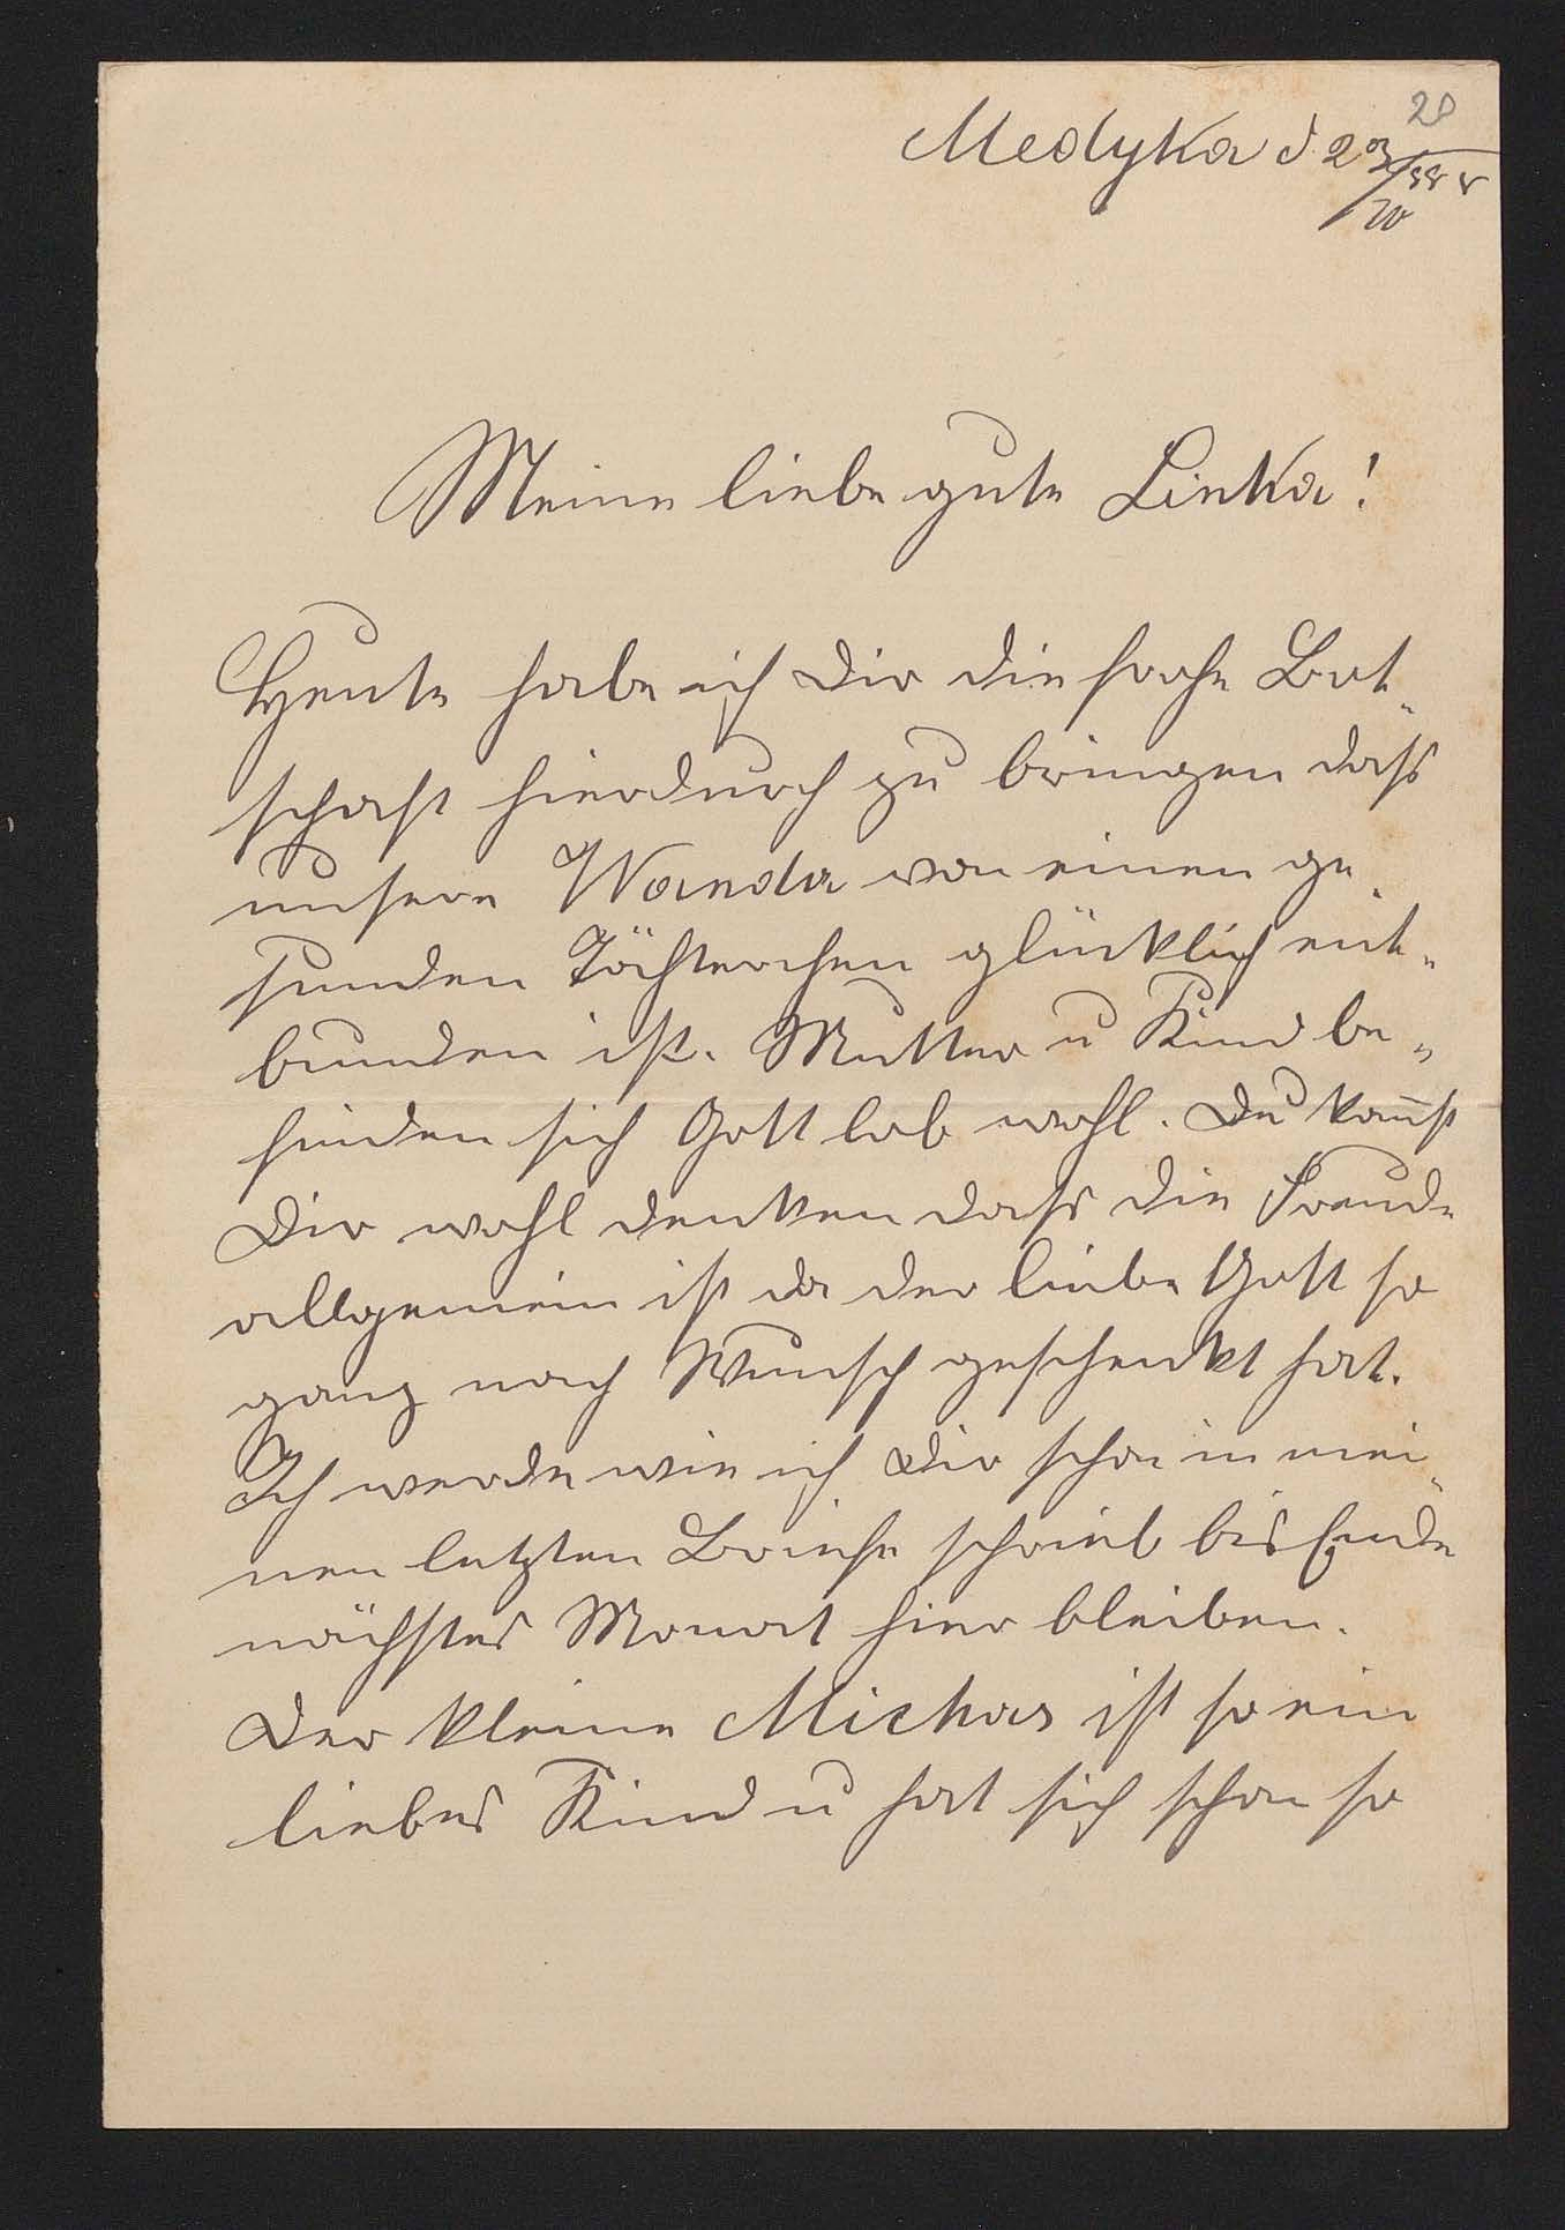 20
Medyka d 23/10 888
Meine liebe gute Linka!
Heute habe ich Dir die frohe Bot„
schaft hierdurch zu bringen dass
unsere Wanda von einen ge„
sunden Töchterchen glücklich ent„
bunden ist. Mutter u Kind be„
finden sich Gott lob wohl. Du kan̄st
Dir wohl denken dass die Freude
allgemein ist da der liebe Gott so
ganz nach Wunsch geschenkt hat.
Ich werde wie ich Dir schon in mei„
nen letzten Briefe schrieb bis Ende
nächstes Monat hier bleiben.
Der kleine Michas ist so ein
liebes Kind u hat sich schon so